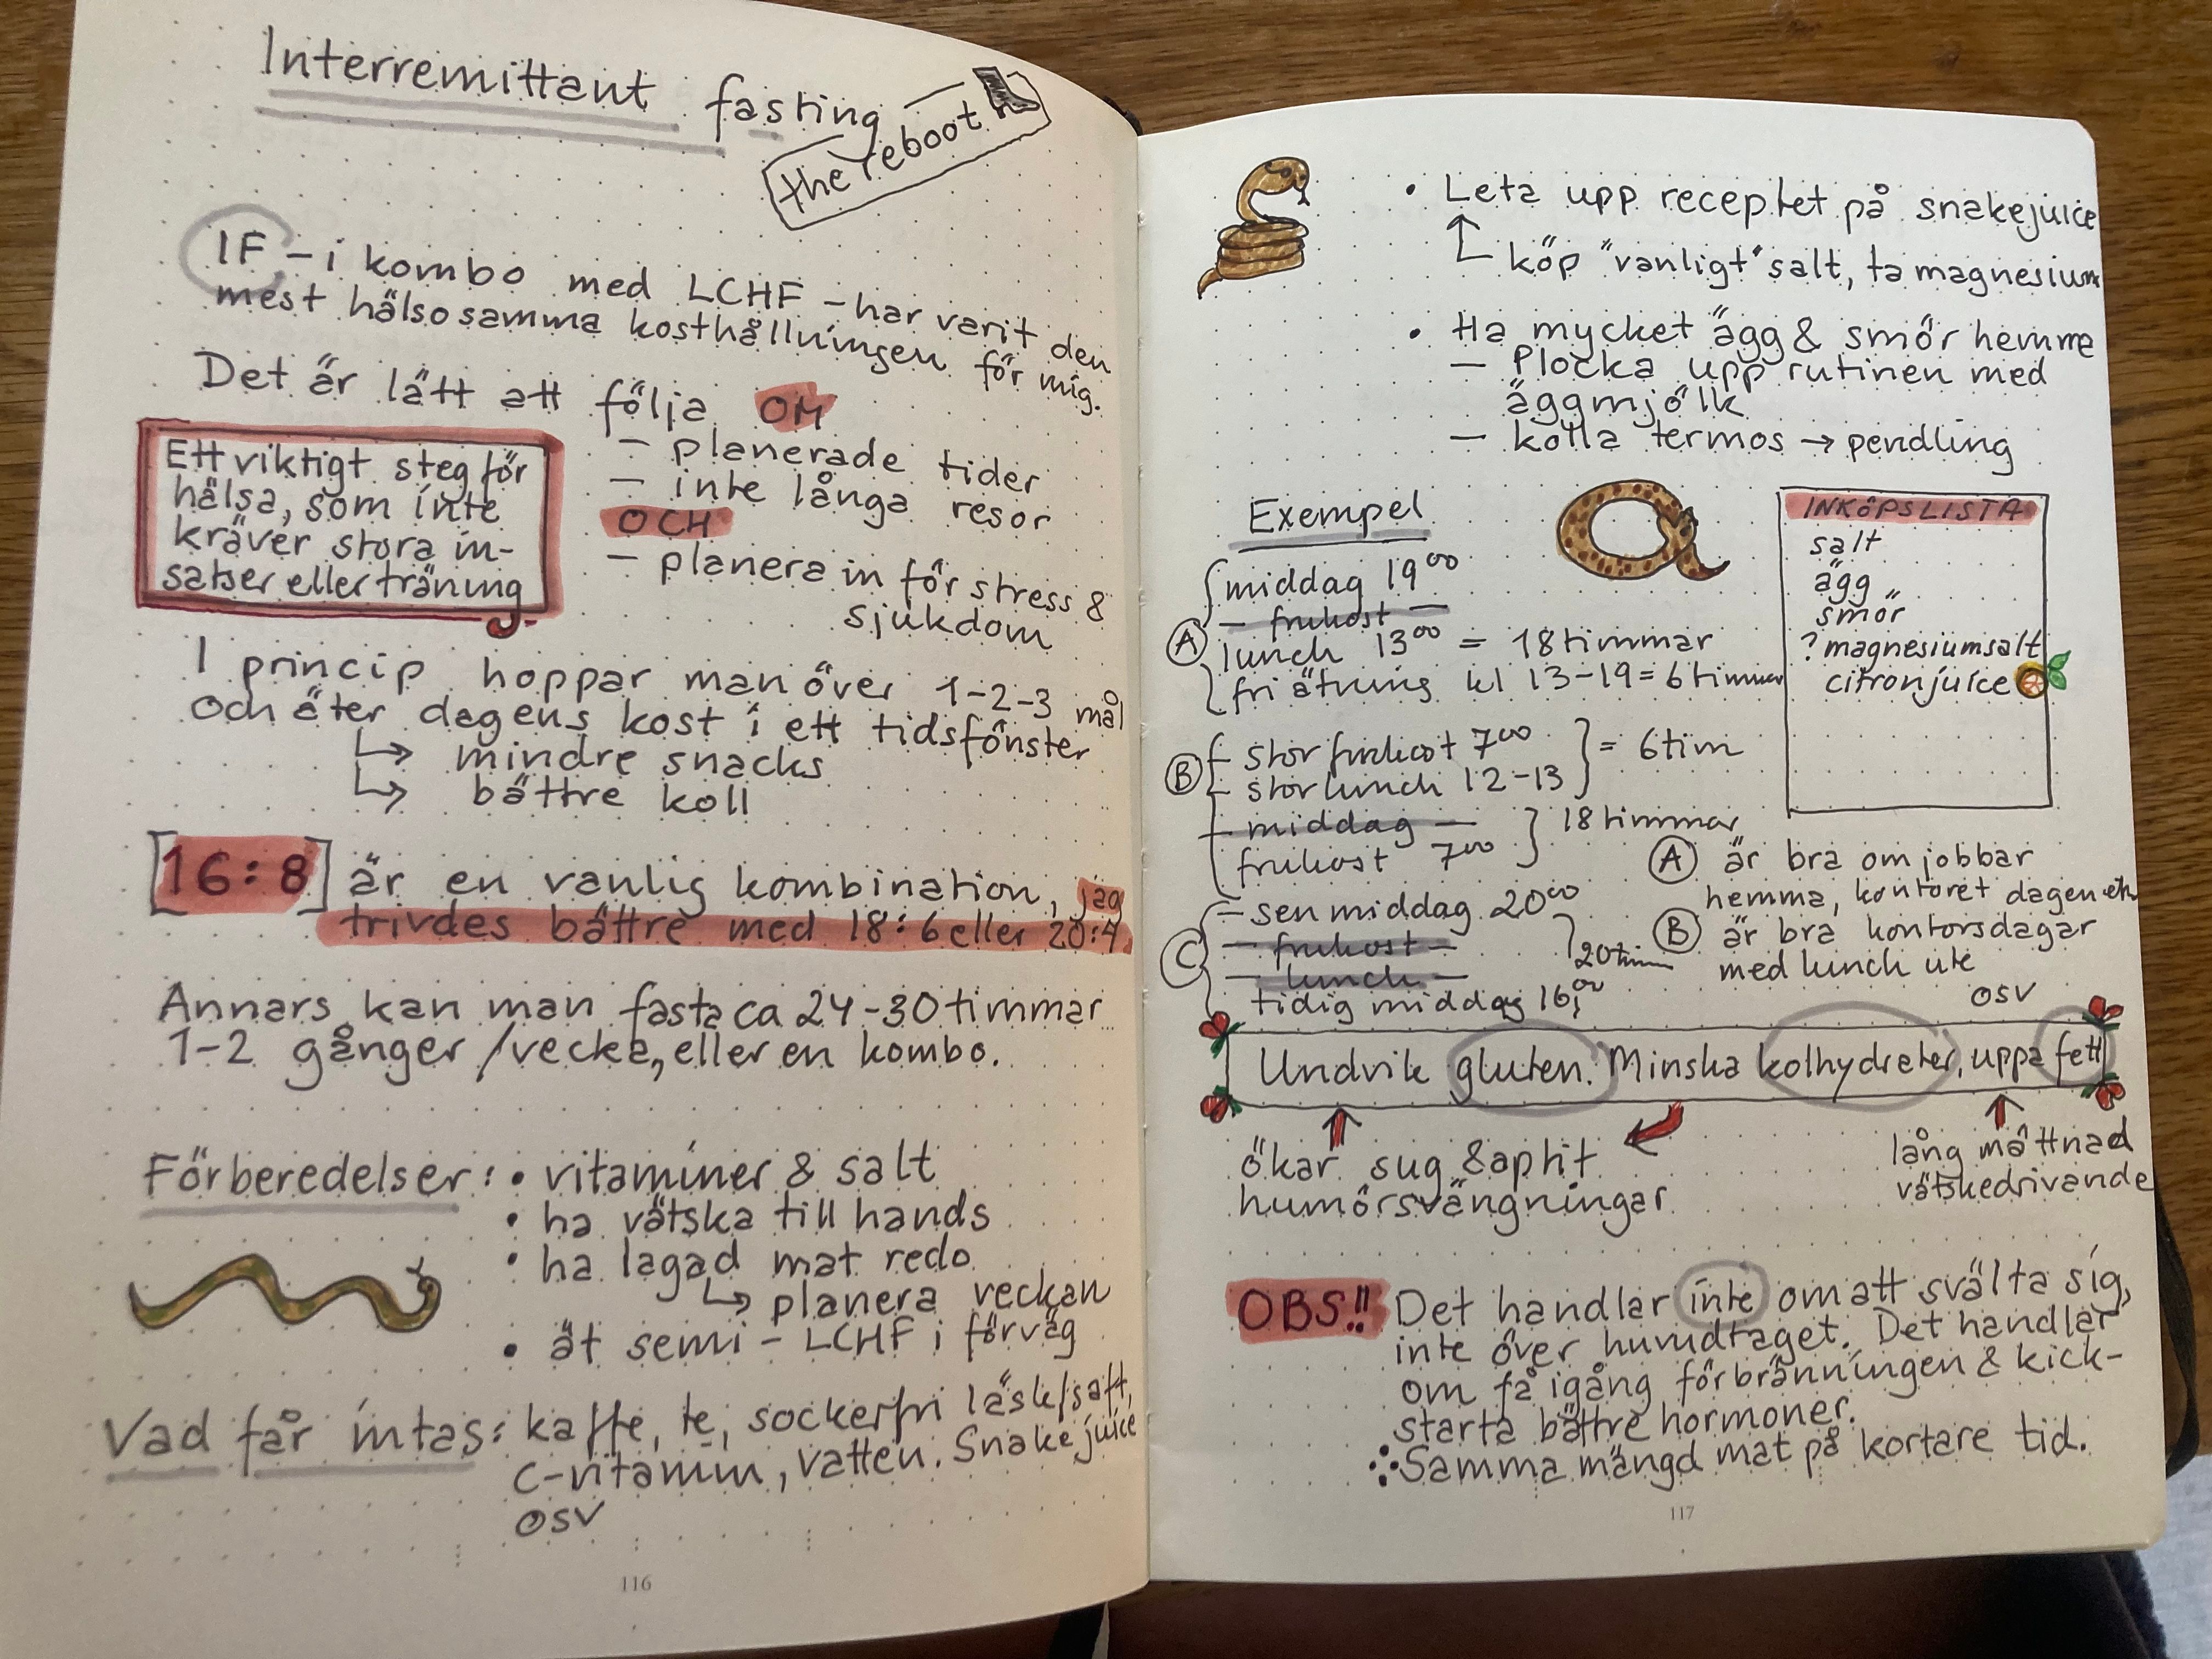 Interremittant fasting
the reboot
IF - i kombo med LCHF - har varit den
mest hälsosamma kosthållningen för mig.
Det är lätt att följa OM
- planerade tider
- inte långa resor
OCH
- planera in för stress &
sjukdom
Ett viktigt steg för
hälsa, som inte
kräver stora in-
satser eller träning
I princip hoppar man över 1-2-3 mål
och äter dagens kost i ett tidsfönster
↳ mindre snacks
↳ bättre koll
[16:8] är en vanlig kombination, jag
trivdes bättre med 18:6 eller 20:4
Annars kan man fasta ca 24-30 timmar
1-2 gånger/vecka, eller en kombo.
Förberedelser: • vitaminer & salt
• ha vätska till hands
• ha lagad mat redo
↳ planera veckan
• ät semi-LCHF i förväg
Vad får intas: kaffe, te, sockerfri läsk/saft,
C-vitamin, vatten. Snakejuice
osv
116
• Leta upp receptet på snakejuice
köp "vanligt" salt, ta magnesium
• Ha mycket ägg & smör hemme
- Plocka upp rutinen med
äggmjölk
- kolla termos → pendling
Exempel
middag 19⁰⁰
- frukost -
A lunch 13⁰⁰ = 18 timmar
fri ätning kl 13-19 = 6 timmer
B - stor frukost 7⁰⁰
- stor lunch 12-13 } = 6 tim
- middag -
frukost 7⁰⁰ } 18 timmar
- sen middag 20⁰⁰
C - frukost -
- lunch -
20 tim
tidig middag 16⁰⁰
INKÖPSLISTA
salt
ägg
smör
? magnesiumsalt
citronjuice
A är bra om jobbar
hemma, kontoret dagen
B är bra kontorsdagar
med lunch ute
osv
Undvik gluten. Minska kolhydrater, uppa fett
ökar sug & aptit
humörsvängningar
lång mättnad
vätskedrivande
OBS!! Det handlar inte om att svälta sig,
inte över huvudtaget. Det handlar
om få igång förbränningen & kick-
starta bättre hormoner.
Samma mängd mat på kortare tid.
117